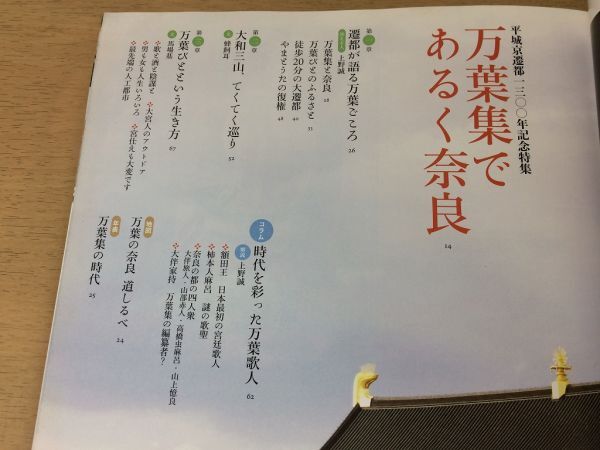 平城京遷都一三〇〇年記念特集
万葉集で
あるく奈良
14
第一章
遷都が語る万葉ごころ 26
上野誠
万葉集と奈良 28
万葉びとのふるさと 33
徒歩20分の大遷都 40
やまとうたの復権 48
第二章
大和三山、てくてく巡り 52
文 蜂飼耳
第三章
万葉びとという生き方 67
文 馬場基
歌と酒と陰謀と
大宮人のアウトドア
男も女も人生いろいろ
宮仕えも大変です
最先端の人工都市
コラム
時代を彩った万葉歌人 62
解説 上野誠
額田王 日本最初の宮廷歌人
柿本人麻呂 謎の歌聖
奈良の都の四人衆
大伴旅人・山部赤人・高橋虫麻呂・山上憶良
大伴家持 万葉集の編纂者?
地図
万葉の奈良 道しるべ 24
年表
万葉集の時代 25